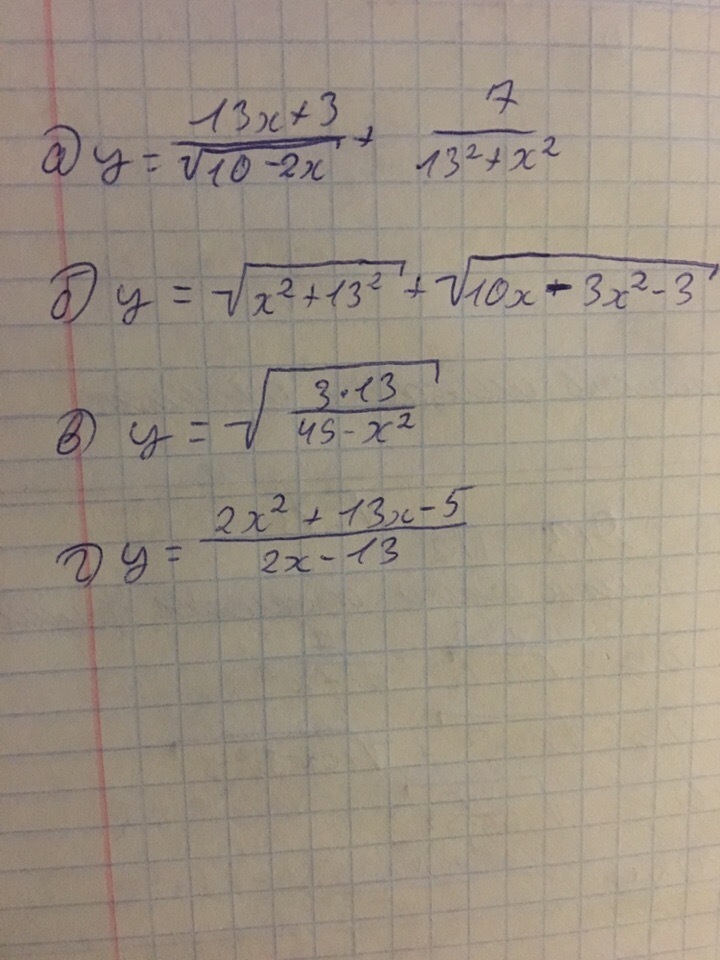 а) y = \frac{13x+3}{\sqrt{10-2x}} + \frac{7}{13^2+x^2}
б) y = \sqrt{x^2+13^2} + \sqrt{10x-3x^2-3}
в) y = \sqrt{\frac{3·13}{45-x^2}}
г) y = \frac{2x^2+13x-5}{2x-13}